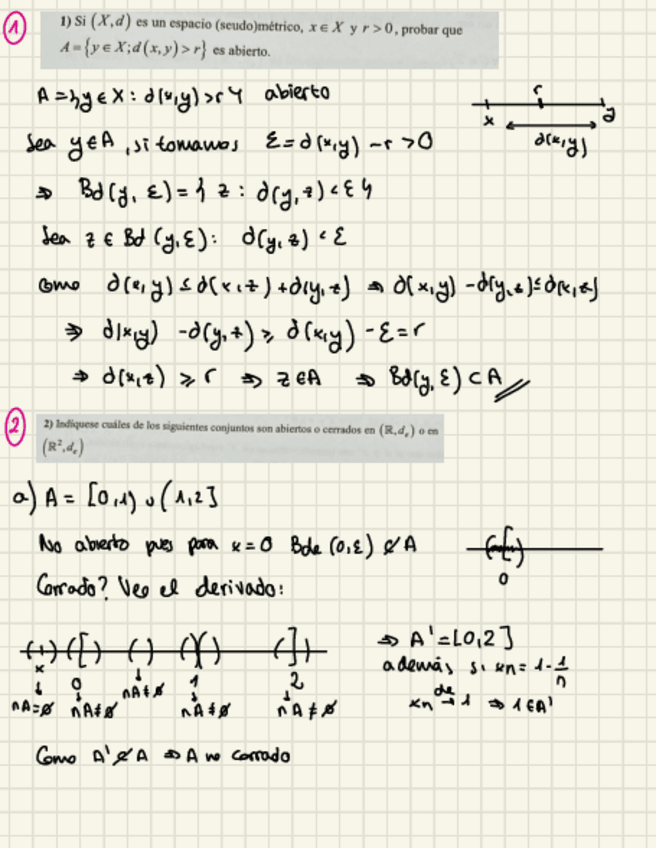 1
1) Si (X,d) es un espacio (seudo)métrico, x∈X y r>0, probar que
A={y∈X;d(x,y)>r} es abierto.
A={y∈X: d(x,y)>r} abierto
r
x
y
d(x,y)
Sea y∈A, si tomamos ε=d(x,y)-r>0
⇒ Bd(y,ε)={z: d(y,z)<ε}
Sea z∈Bd(y,ε): d(y,z)<ε
Como d(x,y)≤d(x,z)+d(y,z) ⇒ d(x,y)-d(y,z)≤d(x,z)
⇒ d(x,y)-d(y,z)≥d(x,y)-ε=r
⇒ d(x,z)≥r ⇒ z∈A ⇒ Bd(y,ε)⊂A
2
2) Indíquese cuáles de los siguientes conjuntos son abiertos o cerrados en (ℝ,dₑ) o en
(ℝ²,dₑ)
a) A=[0,1)∪(1,2]
No abierto pues para x=0 Bde(0,ε)⊄A
0
Cerrado? Veo el derivado:
x 0 1 2
∩A=∅ ∩A≠∅ ∩A≠∅ ∩A≠∅ ∩A≠∅
⇒ A'=[0,2]
además si xn=1-1/n
xn →de 1 ⇒ 1∈A'
Como A'⊄A ⇒ A no cerrado